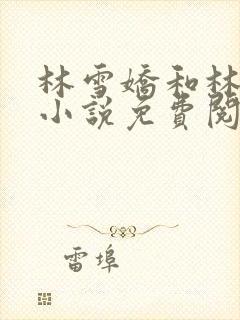 林雪嬌和林
小說免費閱
雷埠